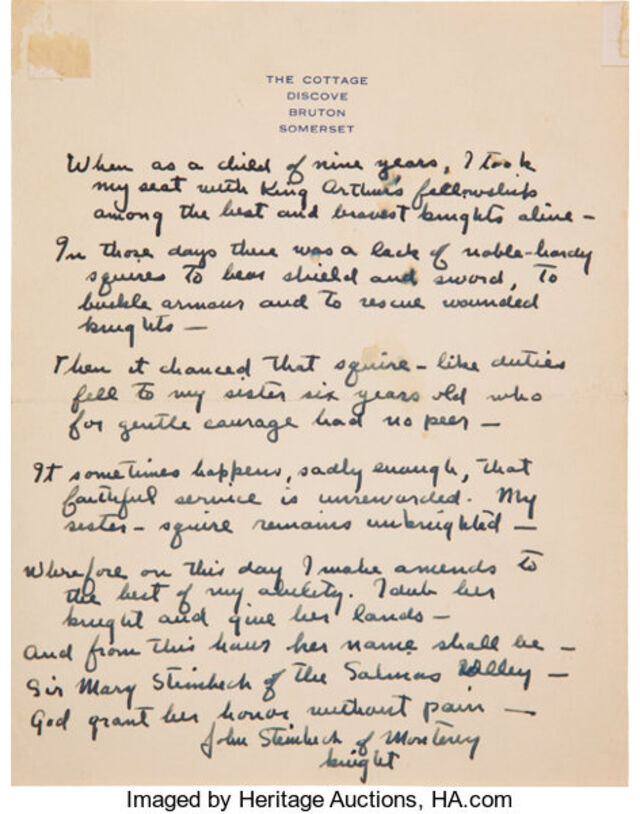 THE COTTAGE
DISCOVE
BRUTON
SOMERSET
When as a child of nine years, I took
my seat with King Arthur's fellowship
among the best and bravest knights alive –
In those days there was a lack of noble-hardy
squires to bear shield and sword, to
buckle armour and to rescue wounded
knights —
Then it chanced that squire-like duties
fell to my sister six years old who
for gentle courage had no peer —
It sometimes happens, sadly enough, that
faithful service is unrewarded. My
sister-squire remains unknighted —
Wherefore on this day I make amends to
the best of my ability. I dub her
knight and give her lands —
And from this hour her name shall be —
Sir Mary Steinbeck of the Salinas Valley —
God grant her honor without pain —
John Steinbeck of Monterey
knight
Imaged by Heritage Auctions, HA.com